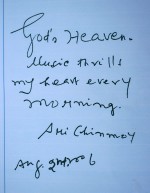 God's Heaven.
Music thrills
my heart every
morning.
Sri Chinmoy
Aug. 2nd